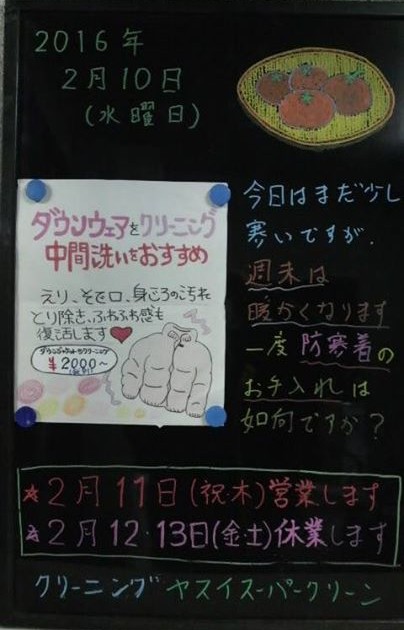 2016年
2月10日
(水曜日)
ダウンウェアをクリーニング
中間洗いをおすすめ
えり、そで口、身ごろの汚れ
とり除き、ふわふわ感も
復活します♥
ダウンジャケットクリーニング
¥2000~
今日はまだ少し
寒いですが、
週末は
暖かくなります
一度防寒着の
お手入れは
如何ですか?
☆2月11日(祝木)営業します
☆2月12・13日(金土)休業します
クリーニングヤスイスーパークリーン